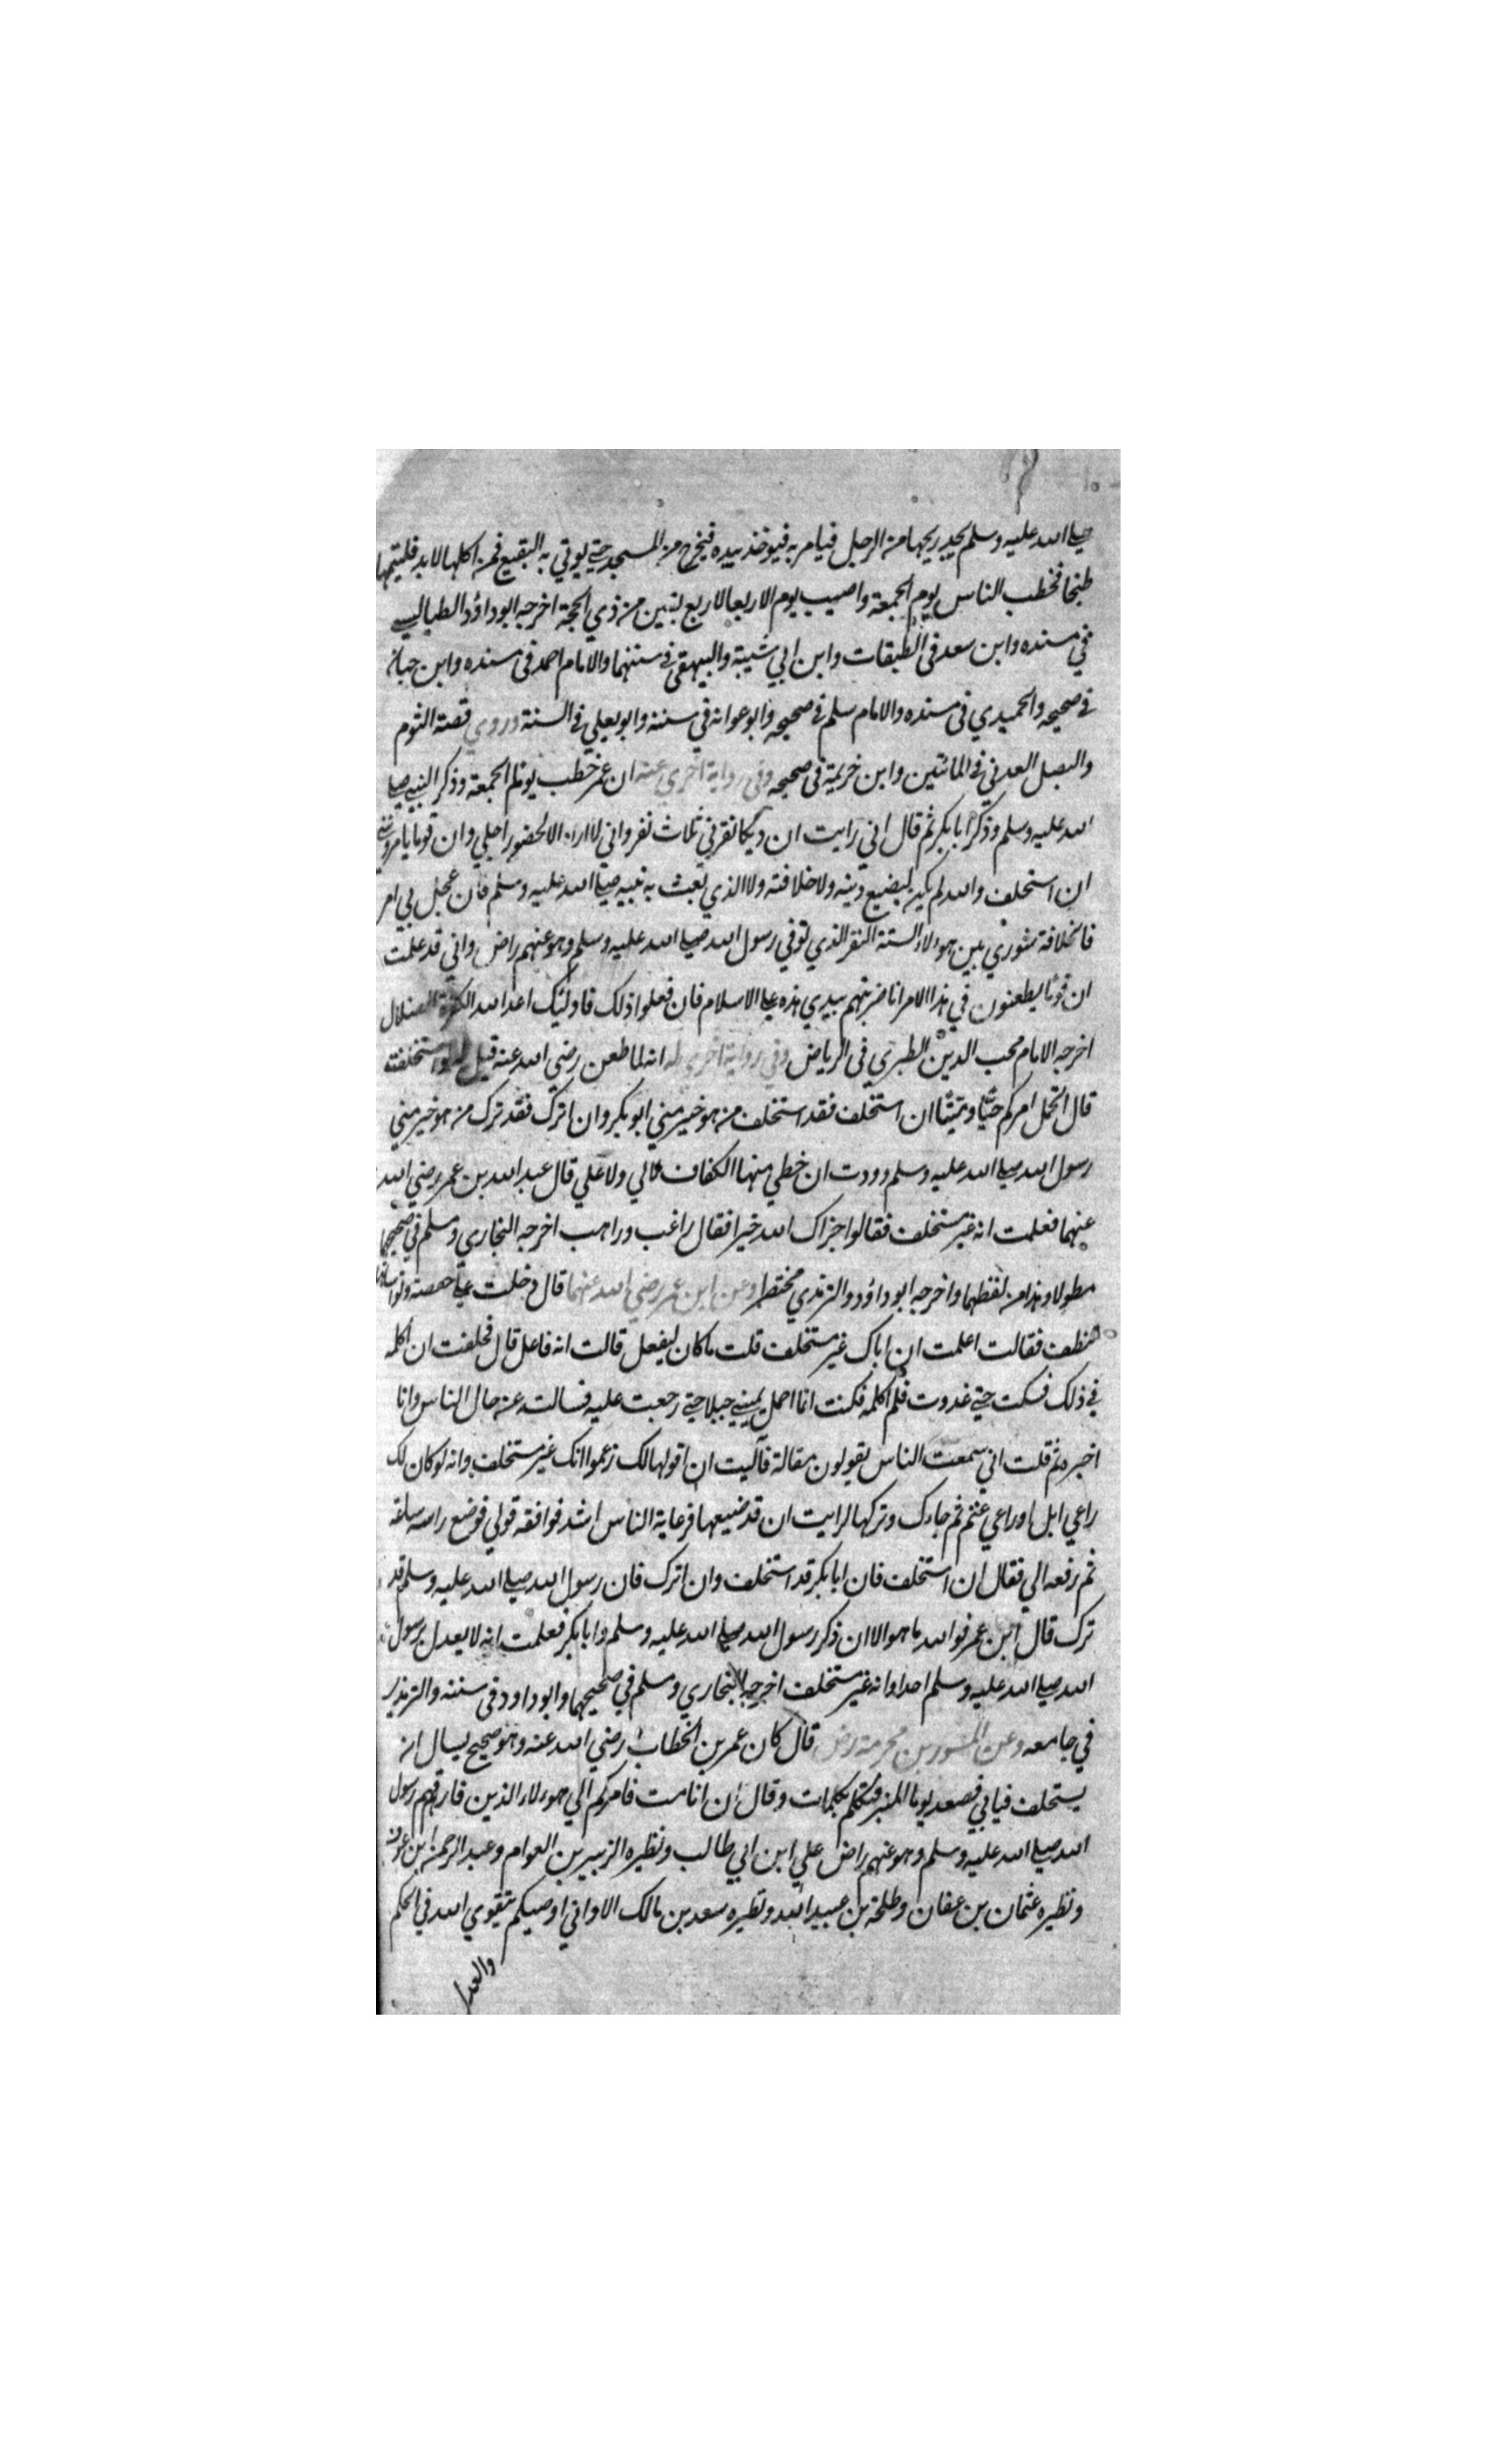 صلى الله عليه وسلم يجد ريحها من الرجل فيامر به فيوخذ بيده فيخرج من المسجد حتى يوتي به البقيع فمن اكلها لابد فليمتها
طبخا فخطب الناس يوم الجمعة واصيب يوم الاربعا لاربع بقين من ذي الحجة اخرجه ابو داؤد الطيالسي
في مسنده وابن سعد في الطبقات وابن ابي شيبة والبيهقي في سننهما والامام احمد في مسنده وابن حبان
في صحيحه والحميدي في مسنده والامام مسلم في صحيحه وابو عوانة في سننه وابو يعلي في السنة وروي قصة الثوم
والبصل العدني في المائتين وابن خزيمة في صحيحه وفي رواية اخري عنه ان عمر خطب يوم الجمعة وذكر النبي صلى
الله عليه وسلم وذكر ابا بكر ثم قال اني رايت ان ديكا نقرني ثلاث نقر واني لا اراه الا لحضور اجلي وان قوما يامروني
ان استخلف والله لم يكن ليضيع دينه ولا خلافته ولا الذي بعث به نبيه صلى الله عليه وسلم فان عجل بي امر
فالخلافة شوري بين هولاء الستة النفر الذي توفي رسول الله صلى الله عليه وسلم وهو عنهم راض واني قد علمت
ان قوما يطعنون في هذا الامر انا ضربتهم بيدي هذه على الاسلام فان فعلوا ذلك فاولئك اعدا الله الكفرة الضلال
اخرجه الامام محب الدين الطبري في الرياض وفي رواية اخري له انه لما طعن رضي الله عنه قيل له لو استخلفته
قال اتحمل امركم حيًّا وميتًا ان استخلف فقد استخلف من هو خير مني ابو بكر وان اترك فقد ترك من هو خير مني
رسول الله صلى الله عليه وسلم وددت ان حظي منها الكفاف لا لي ولا علي قال عبد الله بن عمر رضي الله
عنهما فعلمت انه غير مستخلف فقالوا جزاك الله خيرا فقال راغب وراهب اخرجه البخاري ومسلم في صحيحهما
مطولا وهذا من لفظهما واخرجه ابو داؤد والترمذي مختصرا وعن ابن عمر رضي الله عنهما قال دخلت على حفصة ونواساتها
تنطف فقالت اعلمت ان اباك غير مستخلف قلت ما كان ليفعل قالت انه فاعل قال فحلفت ان اكلمه
في ذلك فسكت حتى غدوت فلم اكلمه فكنت انما احمل بيميني جبلا حتى رجعت عليه فسالته عن حال الناس وانا
اخبره ثم قلت اني سمعت الناس يقولون مقالة فآليت ان اقولها لك زعموا انك غير مستخلف وانه لو كان لك
راعي ابل او راعي غنم ثم جاءك وتركها لرايت ان قد ضيعها فرعاية الناس اشد فوافقه قولي فوضع راسه ساعة
ثم رفعه الي فقال ان استخلف فان ابا بكر قد استخلف وان اترك فان رسول الله صلى الله عليه وسلم قد
ترك قال ابن عمر فوالله ما هو الا ان ذكر رسول الله صلى الله عليه وسلم وابا بكر فعلمت انه لا يعدل برسول
الله صلى الله عليه وسلم احدا وانه غير مستخلف اخرجه البخاري ومسلم في صحيحهما وابو داود في سننه والترمذي
في جامعه وعن المسور بن مخرمة رض قال كان عمر بن الخطاب رضي الله عنه وهو صحيح يسال ان
يستخلف فيابي فصعد يوما المنبر فتكلم بكلمات وقال ان انا مت فامركم الي هولاء الذين فارقهم رسول
الله صلى الله عليه وسلم وهو عنهم راض علي ابن ابي طالب ونظيره الزبير بن العوام وعبد الرحمن ابن عوف
ونظيره عثمان بن عفان وطلحة بن عبيد الله ونظيره سعد بن مالك الا واني اوصيكم بتقوي الله في الحكم
والعدل